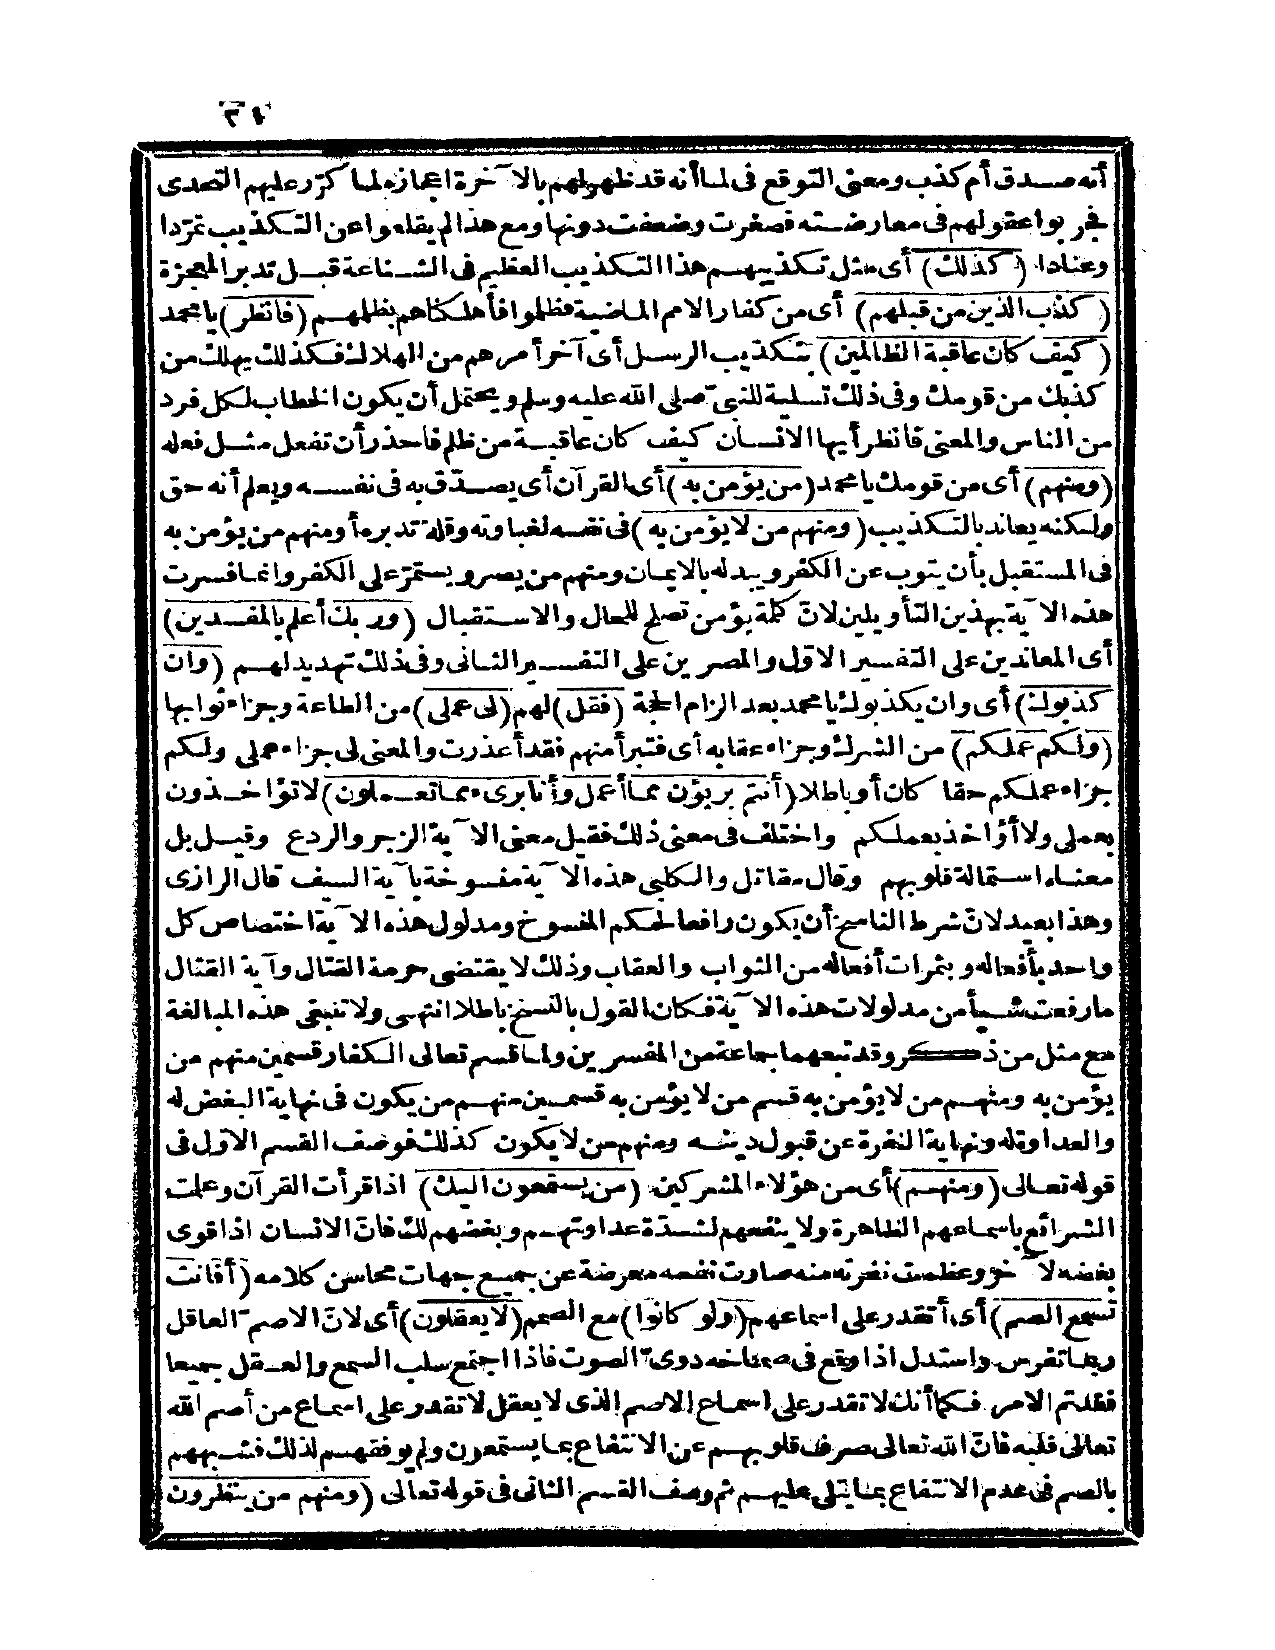 ٢١
أنه صدق أم كذب ومعنى التوقع فى لما أنه قد ظهر لهم بالآخرة اعجازه لما كرّر عليهم التحدى
فجربوا عقولهم فى معارضته فصغرت وضعفت دونها ومع هذا لم يقلعوا عن التكذيب تمرّدا
وعنادا (كذلك) أى مثل تكذيبهم هذا التكذيب العظيم فى الشناعة قبل تدبر المعجزة
(كذب الذين من قبلهم) أى من كفار الامم الماضية فظلموا فأهلكناهم بظلمهم (فانظر) يا محمد
(كيف كان عاقبة الظالمين) بتكذيب الرسل أى آخر أمرهم من الهلاك فكذلك يهلك من
كذبك من قومك وفى ذلك تسلية للنبىّ صلى الله عليه وسلم ويحتمل أن يكون الخطاب لكل فرد
من الناس والمعنى فانظر أيها الانسان كيف كان عاقبة من ظلم فاحذر أن تفعل مثل فعله
(ومنهم) أى من قومك يا محمد (من يؤمن به) أى القرآن أى يصدّق به فى نفسه ويعلم أنه حق
ولكنه يعاند بالتكذيب (ومنهم من لا يؤمن به) فى نفسه لغباوته وقلة تدبره أو منهم من يؤمن به
فى المستقبل بأن يتوب عن الكفر ويبدله بالايمان ومنهم من يصر ويستمرّ على الكفر وانما فسرت
هذه الآية بهذين التأويلين لانّ كلمة يؤمن تصلح للحال والاستقبال (وربك أعلم بالمفسدين)
أى المعاندين على التفسير الاوّل والمصرين على التفسير الثانى وفى ذلك تهديد لهم (وان
كذبوك) أى وان يكذبوك يا محمد بعد الزام الحجة (فقل) لهم (لى عملى) من الطاعة وجزاء ثوابها
(ولكم عملكم) من الشرك وجزاء عقابه أى فتبرأ منهم فقد أعذرت والمعنى لى جزاء عملى ولكم
جزاء عملكم حقا كان أو باطلا (أنتم بريؤن مما أعمل وأنا برىء مما تعملون) لا تؤاخذون
بعملى ولا أؤاخذ بعملكم واختلف فى معنى ذلك فقيل معنى الآية الزجر والردع وقيل بل
معناه استمالة قلوبهم وقال مقاتل والكلبى هذه الآية منسوخة بآية السيف قال الرازى
وهذا بعيد لانّ شرط الناسخ أن يكون رافعا لحكم المنسوخ ومدلول هذه الآية اختصاص كل
واحد بأفعاله وبثمرات أفعاله من الثواب والعقاب وذلك لا يقتضى حرمة القتال وآية القتال
ما رفعت شيأ من مدلولات هذه الآية فكان القول بالنسخ باطلا انتهى ولا تنبغى هذه المبالغة
مع مثل من ذكر وقد تبعهما جماعة من المفسرين ولما قسم تعالى الكفار قسمين منهم من
يؤمن به ومنهم من لا يؤمن به قسم من لا يؤمن به قسمين منهم من يكون فى نهاية البغض له
والعداوة له ونهاية النفرة عن قبول دينه ومنهم من لا يكون كذلك فوصف القسم الاوّل فى
قوله تعالى (ومنهم) أى من هؤلاء المشركين (من يستمعون اليك) اذا قرأت القرآن وعلمت
الشرائع باسماعهم الظاهرة ولا ينفعهم لشدّة عداوتهم وبغضهم لك فانّ الانسان اذا قوى
بغضه لآخر وعظمت نفرته منه صارت نفسه معرضة عن جميع جهات محاسن كلامه (أفأنت
تسمع الصم) أى أتقدر على اسماعهم (ولو كانوا) مع الصمم (لا يعقلون) أى لانّ الاصمّ العاقل
ربما تفرس واستدل اذا وقع فى صماخه دوىّ الصوت فاذا اجتمع سلب السمع والعقل جميعا
فقد تم الامر فكما أنك لا تقدر على اسماع الاصم الذى لا يعقل لا تقدر على اسماع من أصم الله
تعالى قلبه فانّ الله تعالى صرف قلوبهم عن الانتفاع بما يستمعون ولم يوفقهم لذلك فشبههم
بالصم فى عدم الانتفاع بما يتلى عليهم ثم وصف القسم الثانى فى قوله تعالى (ومنهم من ينظرون